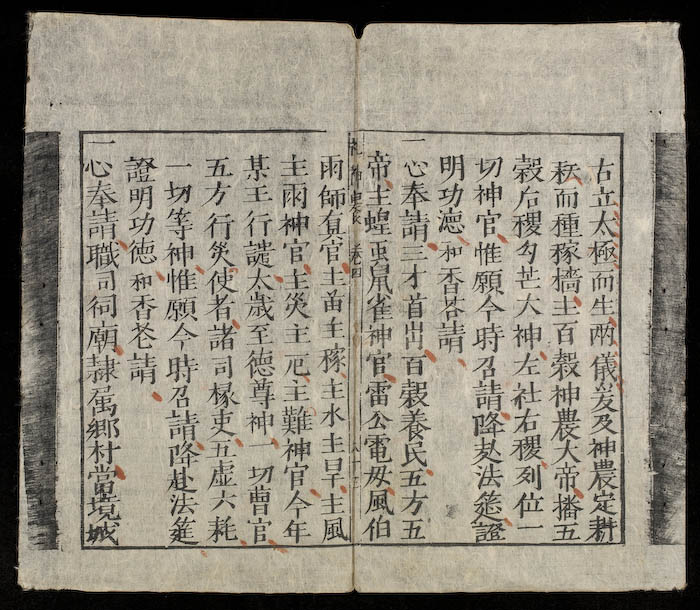 古立太極而生兩儀爰及神農定耕
耘而種稼穡主百穀神農大帝播五
穀后稷勾芒大神左社右稷列位一
切神官惟願今時召請降赴法筵證
明功德和香花請
一心奉請三才首出百穀養民五方五
帝主蝗虫鼠雀神官雷公電母風伯
雨師官主苗主稼主水主旱主風
主雨神官主災主厄主難神官今年
某王行譴太歲至德尊神一切曹官
五方行災使者諸司掾吏五虛六耗
一切等神惟願今時召請降赴法筵
證明功德和香花請
一心奉請職司祠廟隷属鄉村當境城